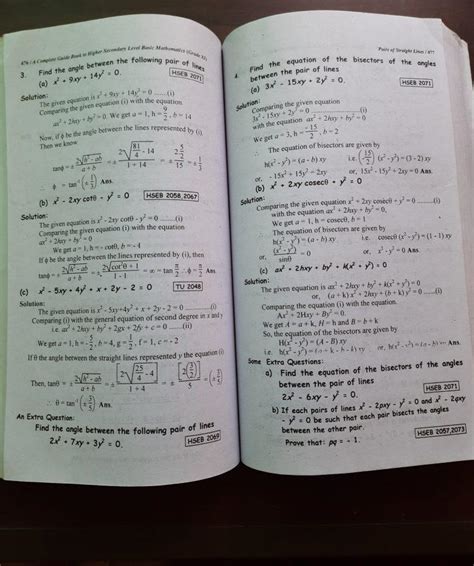 476 / A Complete Guide Book to Higher Secondary Level Basic Mathematics (Grade XI)
3. Find the angle between the following pair of lines
(a) x² + 9xy + 14y² = 0. HSEB 2071
Solution:
The given equation is x² + 9xy + 14y² = 0 ..........(i)
Comparing the equation (i) with the equation
ax² + 2hxy + by² = 0. We get a = 1, h = 9/2, b = 14
Now, if ϕ be the angle between the lines represented by (i).
Then we know
tanϕ = ± 2√(h² - ab) / (a + b) = ± 2√(81/4 - 14) / (1 + 14) = ± 2·(5/2) / 15 = ± 1/3
∴ ϕ = tan⁻¹(± 1/3) Ans.
(b) x² - 2xy cotθ - y² = 0 HSEB 2058,2067
Solution:
The given equation is x² - 2xy cotθ - y² = 0 ..........(i)
Comparing the equation (i) with the equation
ax² + 2hxy + by² = 0
We get a = 1, h = - cotθ, b = - 1
If ϕ be the angle between the lines represented by (i), then
tanϕ = ± 2√(h² - ab) / (a + b) = ± 2√(cot²θ + 1) / (1 - 1) = ∞ = tan π/2 ∴ ϕ = π/2 Ans.
(c) x² - 5xy + 4y² + x + 2y - 2 = 0 TU 2048
Solution:
The given equation is x² - 5xy + 4y² + x + 2y - 2 = 0 ..........(i)
Comparing (i) with the general equation of second degree in x and y
i.e. ax² + 2hxy + by² + 2gx + 2fy + c = 0 ......(ii)
We get a = 1, h = - 5/2, b = 4, g = 1/2, f = 1, c = - 2
If θ be the angle between the straight lines represented by the equation (i)
Then, tanθ = ± 2√(h² - ab) / (a + b) = ± 2√(25/4 - 4) / (1 + 4) = ± 2(3/2) / 5 = (± 3/5)
∴ θ = tan⁻¹(± 3/5) Ans.
An Extra Question:
Find the angle between the following pair of lines
2x² + 7xy + 3y² = 0. HSEB 2069
Pairs of Straight Lines / 477
4. Find the equation of the bisectors of the angles
between the pair of lines
(a) 3x² - 15xy + 2y² = 0. HSEB 2071
Solution:
Comparing the equation
3x² - 15xy + 2y² = 0 ............(i)
with the equation ax² + 2hxy + by² = 0
We get a = 3, h = -15/2, b = 2
The equation of bisectors are given by
h(x² - y²) = (a - b) xy i.e. (-15/2) (x² - y²) = (3 - 2) xy
or, - 15x² + 15y² = 2xy or, 15x² - 15y² + 2xy = 0 Ans.
(b) x² + 2xy cosecθ + y² = 0
Solution:
Comparing the given equation x² + 2xy cosecθ + y² = 0 ......(i)
with the equation ax² + 2hxy + by² = 0,
We get a = 1, h = cosecθ, b = 1
The equation of bisectors are given by
h(x² - y²) = (a - b) xy i.e. cosecθ (x² - y²) = (1 - 1) xy
or, (x² - y²) / sinθ = 0 or, x² - y² = 0 Ans.
(c) ax² + 2hxy + by² + k(x² + y²) = 0
Solution:
The given equation is ax² + 2hxy + by² + k(x² + y²) = 0
or, (a + k) x² + 2hxy + (b + k) y² = 0 ......(i)
Comparing the equation (i) with the equation.
Ax² + 2Hxy + By² = 0.
We get A = a + k, H = h and B = b + k
So, the equation of the bisectors are given by
H(x² - y²) = (A - B) xy
i.e. h(x² - y²) = (a + k - b - k) xy or, h(x² - y²) = (a - b) xy Ans.
Some Extra Questions:
a) Find the equation of the bisectors of the angles
between the pair of lines
2x² - 6xy - y² = 0. HSEB 2071
b) If each pairs of lines x² - 2pxy - y² = 0 and x² - 2qxy
- y² = 0 be such that each pair bisects the angles
between the other pair.
Prove that: pq = - 1. HSEB 2057,2073